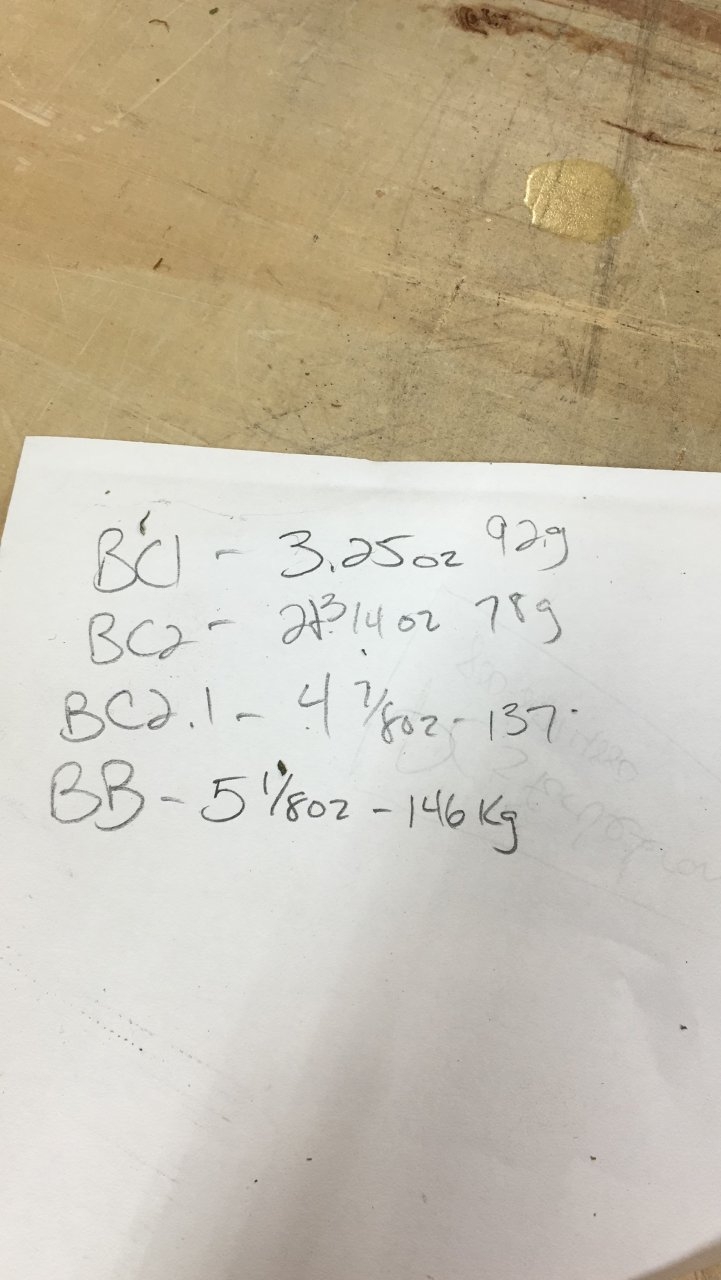 BC1 - 3.25oz 92g
BC2 - 2 3/4 oz 78g
BC2.1 - 4 7/8oz - 137
BB - 5 1/8oz - 146 Kg